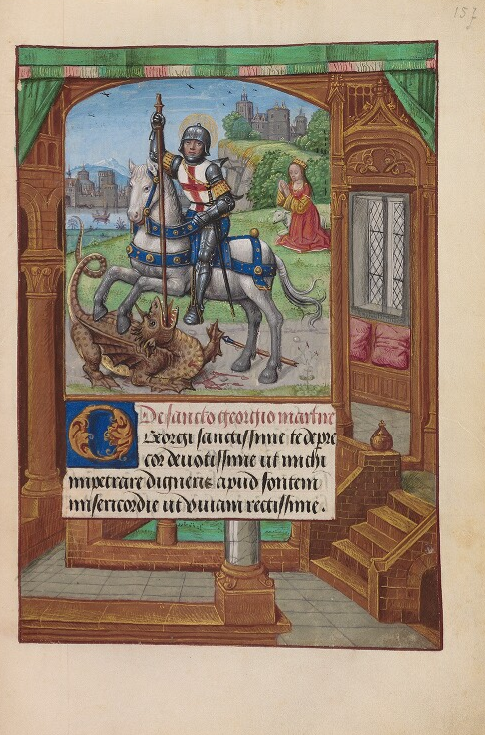 157
De sancto georgio martire
O Georgi sanctissime te depre
cor deuotissime ut michi
impetrare digneris apud fontem
misericordie ut viuam rectissime.